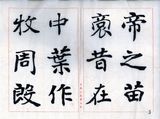 帝之苗
裔昔在
中葉作
牧周殷
3